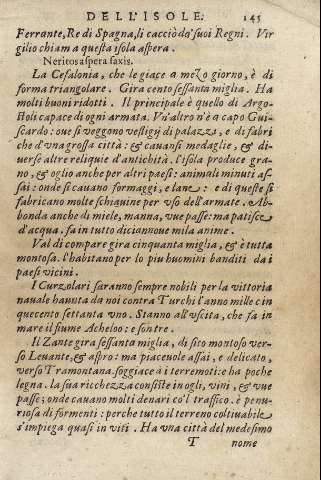 DELL'ISOLE. 145
Ferrante, Re di Spagna, li cacciò da' suoi Regni. Vir
gilio chiam a questa isola aspera.
Neritos aspera saxis.
La Cefalonia, che le giace a mezo giorno, è di
forma triangolare. Gira cento sessanta miglia. Ha
molti buoni ridotti. Il principale è quello di Argo-
stoli capace di ogni armata. Vn'altro n'è a capo Gui-
scardo: oue si veggono vestigij di palazzi, e di fabri
che d'vna grossa città: & cauansi medaglie, & di
uerse altre reliquie d'antichità. l'isola produce gra-
no, & oglio anche per altri paesi: animali minuti as-
sai: onde si cauano formaggi, e lane: e di queste si
fabricano molte schiauine per vso dell'armate. Ab-
bonda anche di miele, manna, vue passe: ma patisce
d'acqua. fa in tutto diciannoue mila anime.
Val di compare gira cinquanta miglia, & è tutta
montosa. l'habitano per lo piu huomini banditi da i
paesi vicini.
I Curzolari saranno sempre nobili per la vittoria
nauale hauuta da noi contra Turchi l'anno mille cin
quecento settanta vno. Stanno all'vscita, che fa in
mare il fiume Acheloo: e son tre.
Il Zante gira sessanta miglia, di sito montoso ver-
so Leuante, & aspro: ma piaceuole assai, e delicato,
verso Tramontana. soggiace a i terremoti: e ha poche
legna. la sua ricchezza consiste in ogli, vini, & vue
passe; onde cauano molti denari co'l traffico. è penu-
riosa di formenti: perche tutto il terreno coltiuabile
s'impiega quasi in viti. Ha vna città del medesimo
T nome